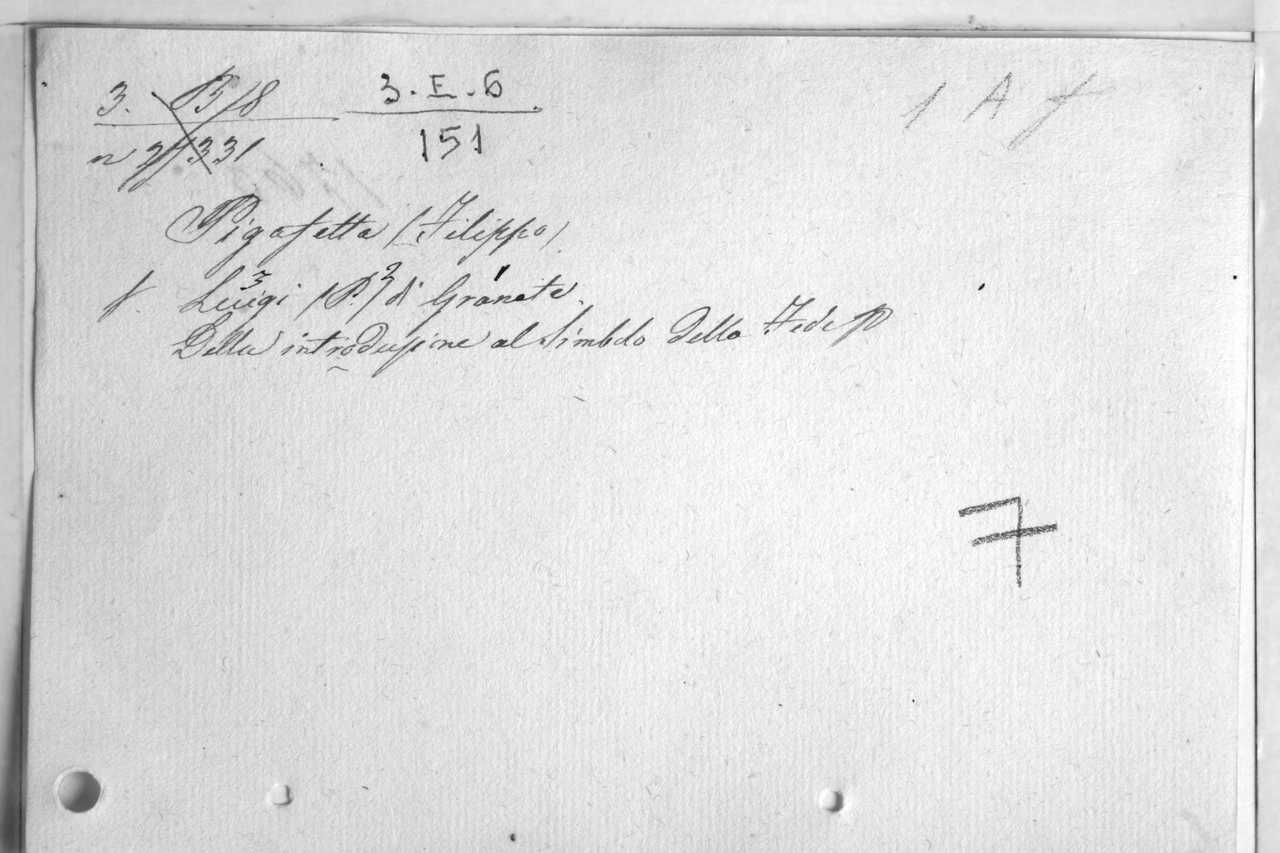 3. B/8
3.E.6
151
1 A f
Pigafetta (Filippo)
f. Luigi (P.) di Granata.
Della introduzione al Simbolo della Fede
7